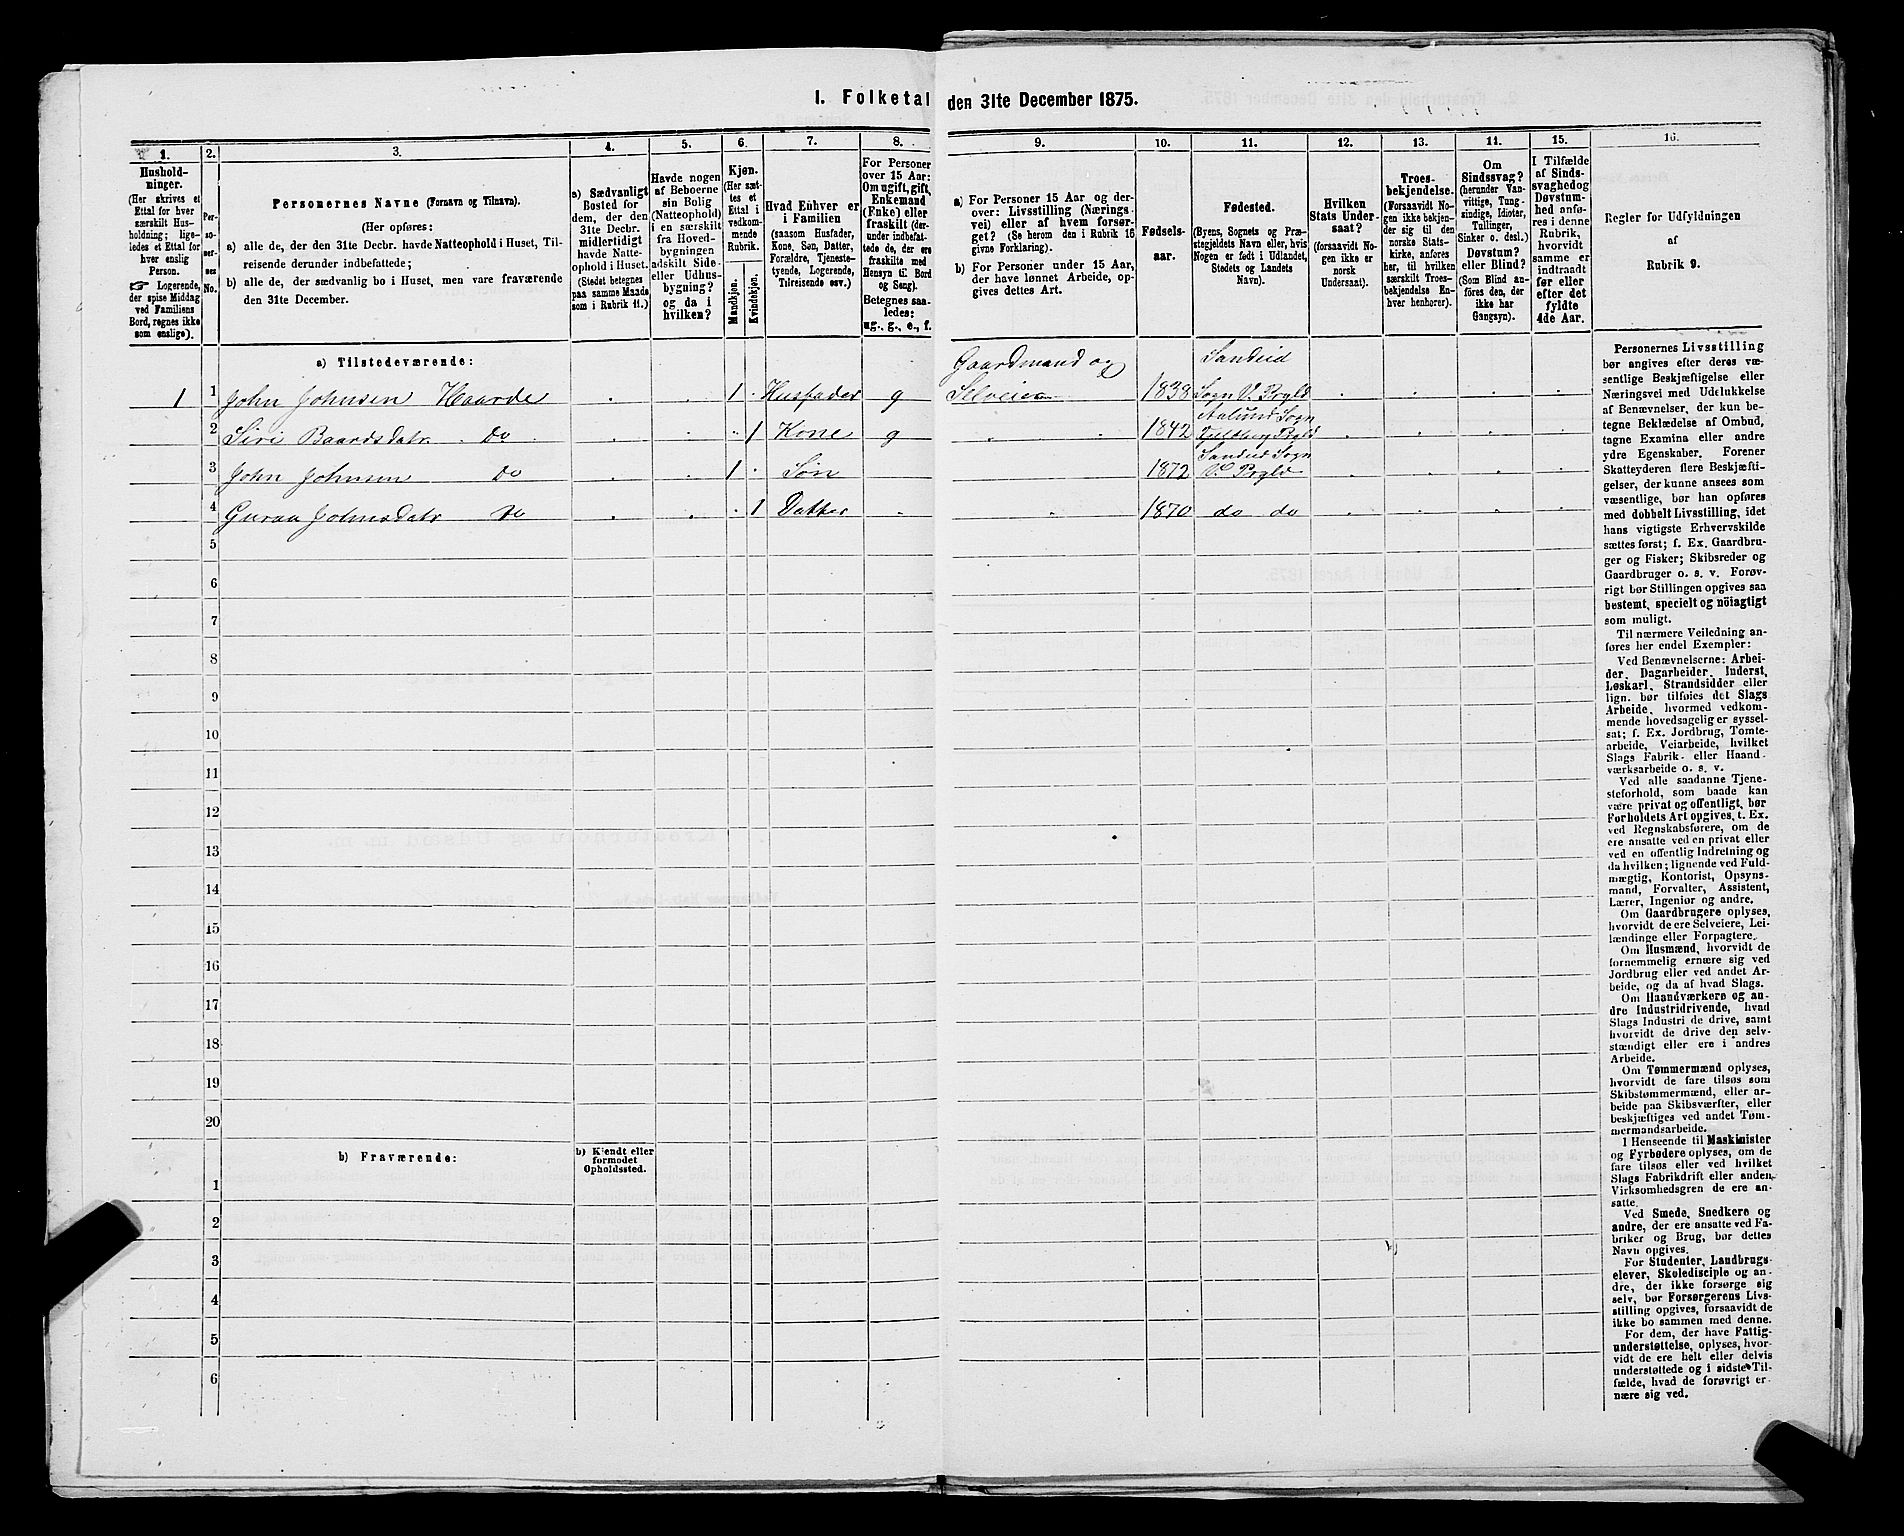 I. Folketal den 31te December 1875.
1.
Hushold-
ninger.
(Her skrives et
Ettal for hver
særskilt Hus-
holdning; lige-
ledes et Ettal for
hver enslig
Person.
☞ Logerende,
der spise Middag
ved Familiens
Bord, regnes ikke
som enslige).
2.
Per-
so-
ner-
nes
No.
3.
Personernes Navne (Fornavn og Tilnavn).
(Her opføres:
a) alle de, der den 31te Decbr. havde Natteophold i Huset, Til-
reisende derunder indbefattede;
b) alle de, der sædvanlig bo i Huset, men vare fraværende
den 31te December.
4.
a) Sædvanligt
Bosted for
dem, der den
31te Decbr.
midlertidigt
havde Natte-
ophold i Huset.
(Stedet betegnes
paa samme Maade
som i Rubrik 11.)
5.
Havde nogen
af Beboerne
sin Bolig
(Natteophold)
i en særskilt
fra Hoved-
bygningen
adskilt Side-
eller Udhus-
bygning?
og da i
hvilken?
6.
Kjøn.
(Her sæt-
tes et
Ettal i
vedkom-
mende
Rubrik.
Mandkjøn.
Kvindekjøn.
7.
Hvad Enhver er
i Familien
(saasom Husfader,
Kone, Søn, Datter,
Forældre, Tjeneste-
tyende, Logerende,
Tilreisende osv.)
8.
For Personer
over 15 Aar:
Om ugift, gift,
Enkemand
(Enke) eller
fraskilt (der-
under indbefat-
tede de, der ere
fraskilte med
Hensyn til Bord
og Seng).
Betegnes saa-
ledes:
ug., g., e., f.
9.
a) For Personer 15 Aar og der-
over: Livsstilling (Nærings-
vei) eller af hvem forsør-
get? (Se herom den i Rubrik 16
givne Forklaring).
b) For Personer under 15 Aar,
der have lønnet Arbeide, op-
gives dettes Art.
10.
Fødsels-
aar.
11.
Fødested.
(Byens, Sognets og Præ-
stegjeldets Navn eller, hvis
Nogen er født i Udlandet,
Stedets og Landets
Navn).
12.
Hvilken
Stats Under-
saat?
(forsaavidt No-
gen ikke er
norsk
Undersaat).
13.
Troes-
bekjendelse.
(Forsaavidt No-
gen ikke bekjen-
der sig til den
norske Stats-
kirke, anføres
her, til hvilken
særskilt Troes-
bekjendelse En-
hver henhører).
14.
Om
Sindssvag?
(herunder Van-
vittige, Tung-
sindige, Idioter,
Tullinger,
Sinker o. desl.)
Døvstum?
eller Blind?
(Som Blind an-
føres den, der
ikke har
Gangsyn).
15.
I Tilfælde
af Sinds-
svaghed og
Døvstum-
hed anfø-
res i denne
Rubrik,
hvorvidt
samme er
indtraadt
før eller
efter det
fyldte
4de Aar.
16.
Regler for Udfyldningen
af
Rubrik 9.
a) Tilstedeværende:
Gaardmand og Sandeid
1 1 John Johnsen Haarde 1 Husfader g Selveier 1838 Sogn V. Prgld
Aalund Sogn
2 Siri Baardsdatr Do 1 Kone g 1842 Prgld
Sandeid Sogn
3 John Johnsen Do 1 Søn 1872 V. Prgld
4 Guraa Johnsdatr Do 1 Datter 1870 do do
5
6
7
8
9
10
11
12
13
14
15
16
17
18
19
20
b) Fraværende:
b) Kjendt eller
formodet
Opholdssted.
1
2
3
4
5
6
Personernes Livsstilling
bør angives efter deres væ-
sentlige Beskjæftigelse eller
Næringsvei med Udelukkelse
af Benævnelser, der kun be-
tegne Beklædelse af Ombud,
tagne Examina eller andre
ydre Egenskaber. Forener
Skatteyderen flere Beskjæfti-
gelser, der kunne ansees som
væsentlige, bør han opføres
med dobbelt Livsstilling, idet
hans vigtigste Erhvervskilde
sættes først; f. Ex. Gaardbru-
ger og Fisker; Skibsreder og
Gaardbruger o. s. v. Forøv-
rigt bør Stillingen opgives saa
bestemt, specielt og nöiagtigt
som muligt.
Til nærmere Veiledning an-
føres her endel Exempler:
Ved Benævnelserne: Arbei-
der, Dagarbeider, Inderst,
Løskarl, Strandsidder eller
lign. bør tilføies det Slags
Arbeide, hvormed vedkom-
mende hovedsagelig er syssel-
sat; f. Ex. Jordbrug, Tomte-
arbeide, Veiarbeide, hvilket
Slags Fabrik- eller Haand-
værksarbeide o. s. v.
Ved alle saadanne Tjene-
steforhold, som baade kan
være privat og offentligt, bør
Forholdets Art opgives, t. Ex.
ved Regnskabsførere, om de
ere ansatte ved en privat eller
ved en offentlig Indretning og
da hvilken; lignende ved Fuld-
mægtig, Kontorist, Opsyns-
mand, Forvalter, Assistent,
Lærer, Ingeniør og andre.
Om Gaardbrugere oplyses,
hvorvidt de ere Selveiere, Lei-
lændinge eller Forpagtere.
Om Husmænd, hvorvidt de
fornemmelig ernære sig ved
Jordbrug eller ved andet Ar-
beide, og da af hvad Slags.
Om Haandværkere og an-
dre Industridrivende, hvad
Slags Industri de drive, samt
hvorvidt de drive den selv-
stændigt eller ere i andres
Arbeide.
Om Tømmermænd oplyses,
hvorvidt de fare tilsøs som
Skibstømmermænd, eller ar-
beide paa Skibsværfter, eller
beskjæftiges ved andet Tøm-
mermandsarbeide.
I Henseende til Maskinister
og Fyrbødere oplyses, om de
fare tilsøs eller ved hvilket
Slags Fabrikdrift eller anden
Virksomhedsgren de ere an-
satte.
Ved Smede, Snedkere og
andre, der ere ansatte ved Fa-
briker og Brug, bør dettes
Navn opgives.
For Studenter, Landbrugs-
elever, Skoledisciple og an-
dre, der ikke forsørge sig
selv, bør Forsørgerens Livs-
stilling opgives, forsaavidt de
ikke bo sammen med denne.
For dem, der have Fattig-
understøttelse, oplyses, hvor-
vidt de ere helt eller delvis
understøttede og i sidste Til-
fælde, hvad de forøvrigt er-
nære sig ved.